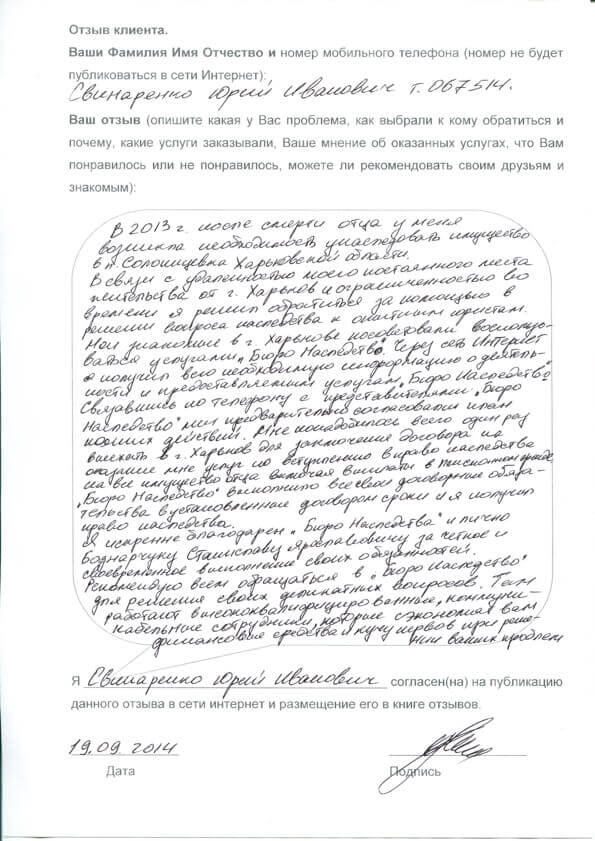 Отзыв клиента.
Ваши Фамилия Имя Отчество и номер мобильного телефона (номер не будет
публиковаться в сети Интернет):
Свинаренко Юрий Иванович т. 067514.
Ваш отзыв (опишите какая у Вас проблема, как выбрали к кому обратиться и
почему, какие услуги заказывали, Ваше мнение об оказанных услугах, что Вам
понравилось или не понравилось, можете ли рекомендовать своим друзьям и
знакомым):
В 2013 г. после смерти отца у меня
возникла необходимость унаследовать имущество
в п. Солоницевка Харьковской области.
В связи с удаленностью моего постоянного места
жительства от г. Харьков и ограниченностью во
времени я решил обратиться за помощью в
решении вопроса наследства к опытным юристам.
Мои знакомые в г. Харькове посоветовали воспользо-
ваться услугами „Бюро Наследство". Через сеть Интернет
я получил всю необходимую информацию о деятель-
ности и предоставляемым услугам „Бюро Наследство".
Связавшись по телефону с представителями „Бюро
Наследство" мы предварительно согласовали план
наших действий. Мне понадобилось всего один раз
выехать в г. Харьков для заключения договора на
оказание мне услуг по вступлению в право наследства
на все имущество отца включая выплаты в пенсионном фонде.
„Бюро Наследство" выполнило все свои договорные обяза-
тельства в установленные договором сроки и я получил
право наследства.
Я искренне благодарен „Бюро Наследства" и лично
Боднарчуку Станиславу Ярославовичу за четкое и
своевременное выполнение своих обязанностей.
Рекомендую всем обращаться в „Бюро Наследство"
для решения своих деликатных вопросов. Там
работают высококвалифицированные, коммуни-
кабельные сотрудники, которые сэкономят вам
финансовые средства и кучу нервов при реше-
нии ваших проблем
Я Свинаренко Юрий Иванович согласен(на) на публикацию
данного отзыва в сети интернет и размещение его в книге отзывов.
19.09.2014
Дата Подпись